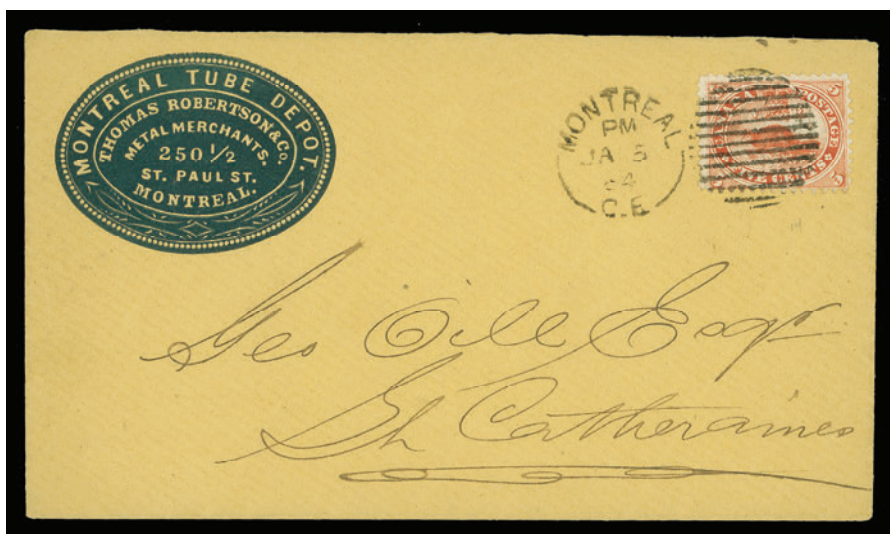 MONTREAL TUBE DEPOT.
THOMAS ROBERTSON & Co.
METAL MERCHANTS.
250 1/2
ST. PAUL ST.
MONTREAL.
MONTREAL
PM
JA 5
64
C.E
5 POSTAGE
CENTS 5
Geo Oill Esqr
St Catheraines